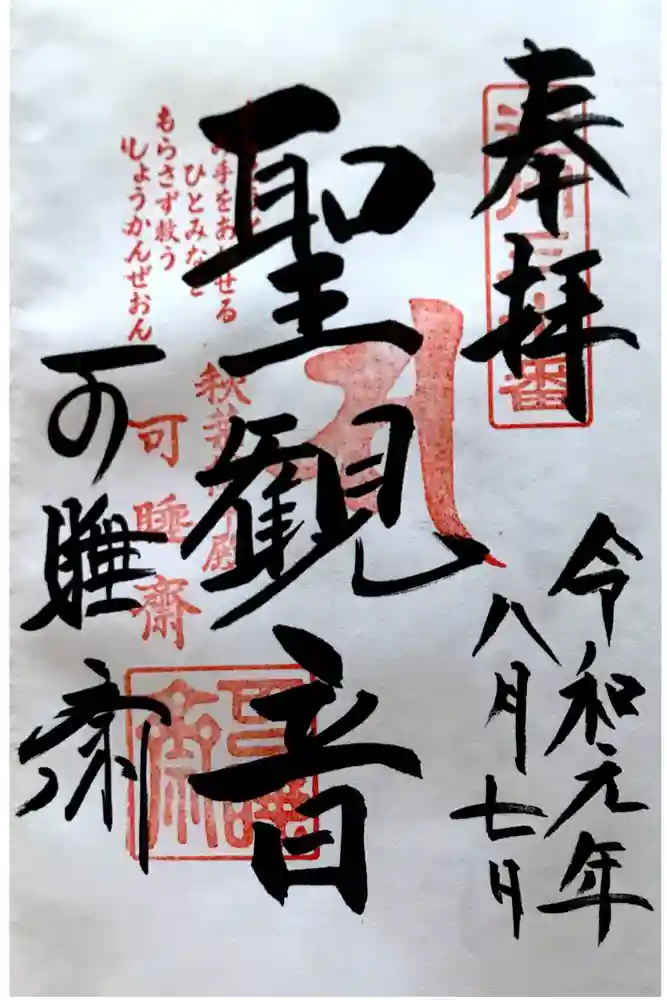 奉拝
令和元年
八月七日
聖観音
手をあ せる
ひとみなと
もらさず救う
しょうかんぜおん
可睡斎
可睡斎